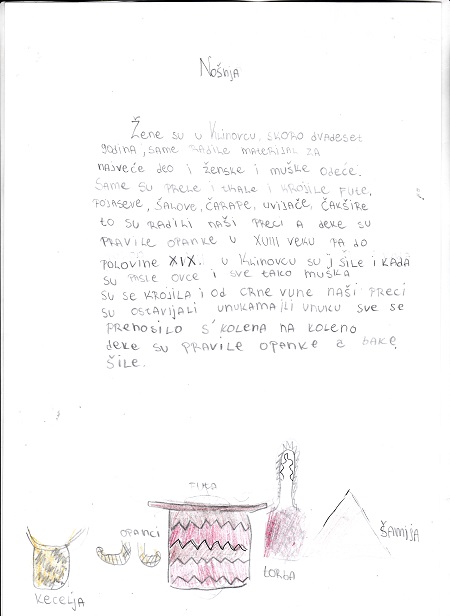 Nošnja
Žene su u Klinovcu, skoro dvadeset
godina, same radile materijal za
najveće deo i ženske i muške odeće.
Same su prele i tkale i krojile fute,
pojaseve, šalove, čarape, uvijače, čakšire
to su radili naši preci a deke su
pravile opanke u XVIII veku pa do
polovine XIX. u Klinovcu su i šile i kada
su pasle ovce i sve tako muška
su se krojila i od crne vune naši preci
su ostavljali unukama ili unuku sve se
prenosilo s' kolena na koleno
deke su pravile opanke a bake
šile.
futa
opanci
šamija
torba
kecelja